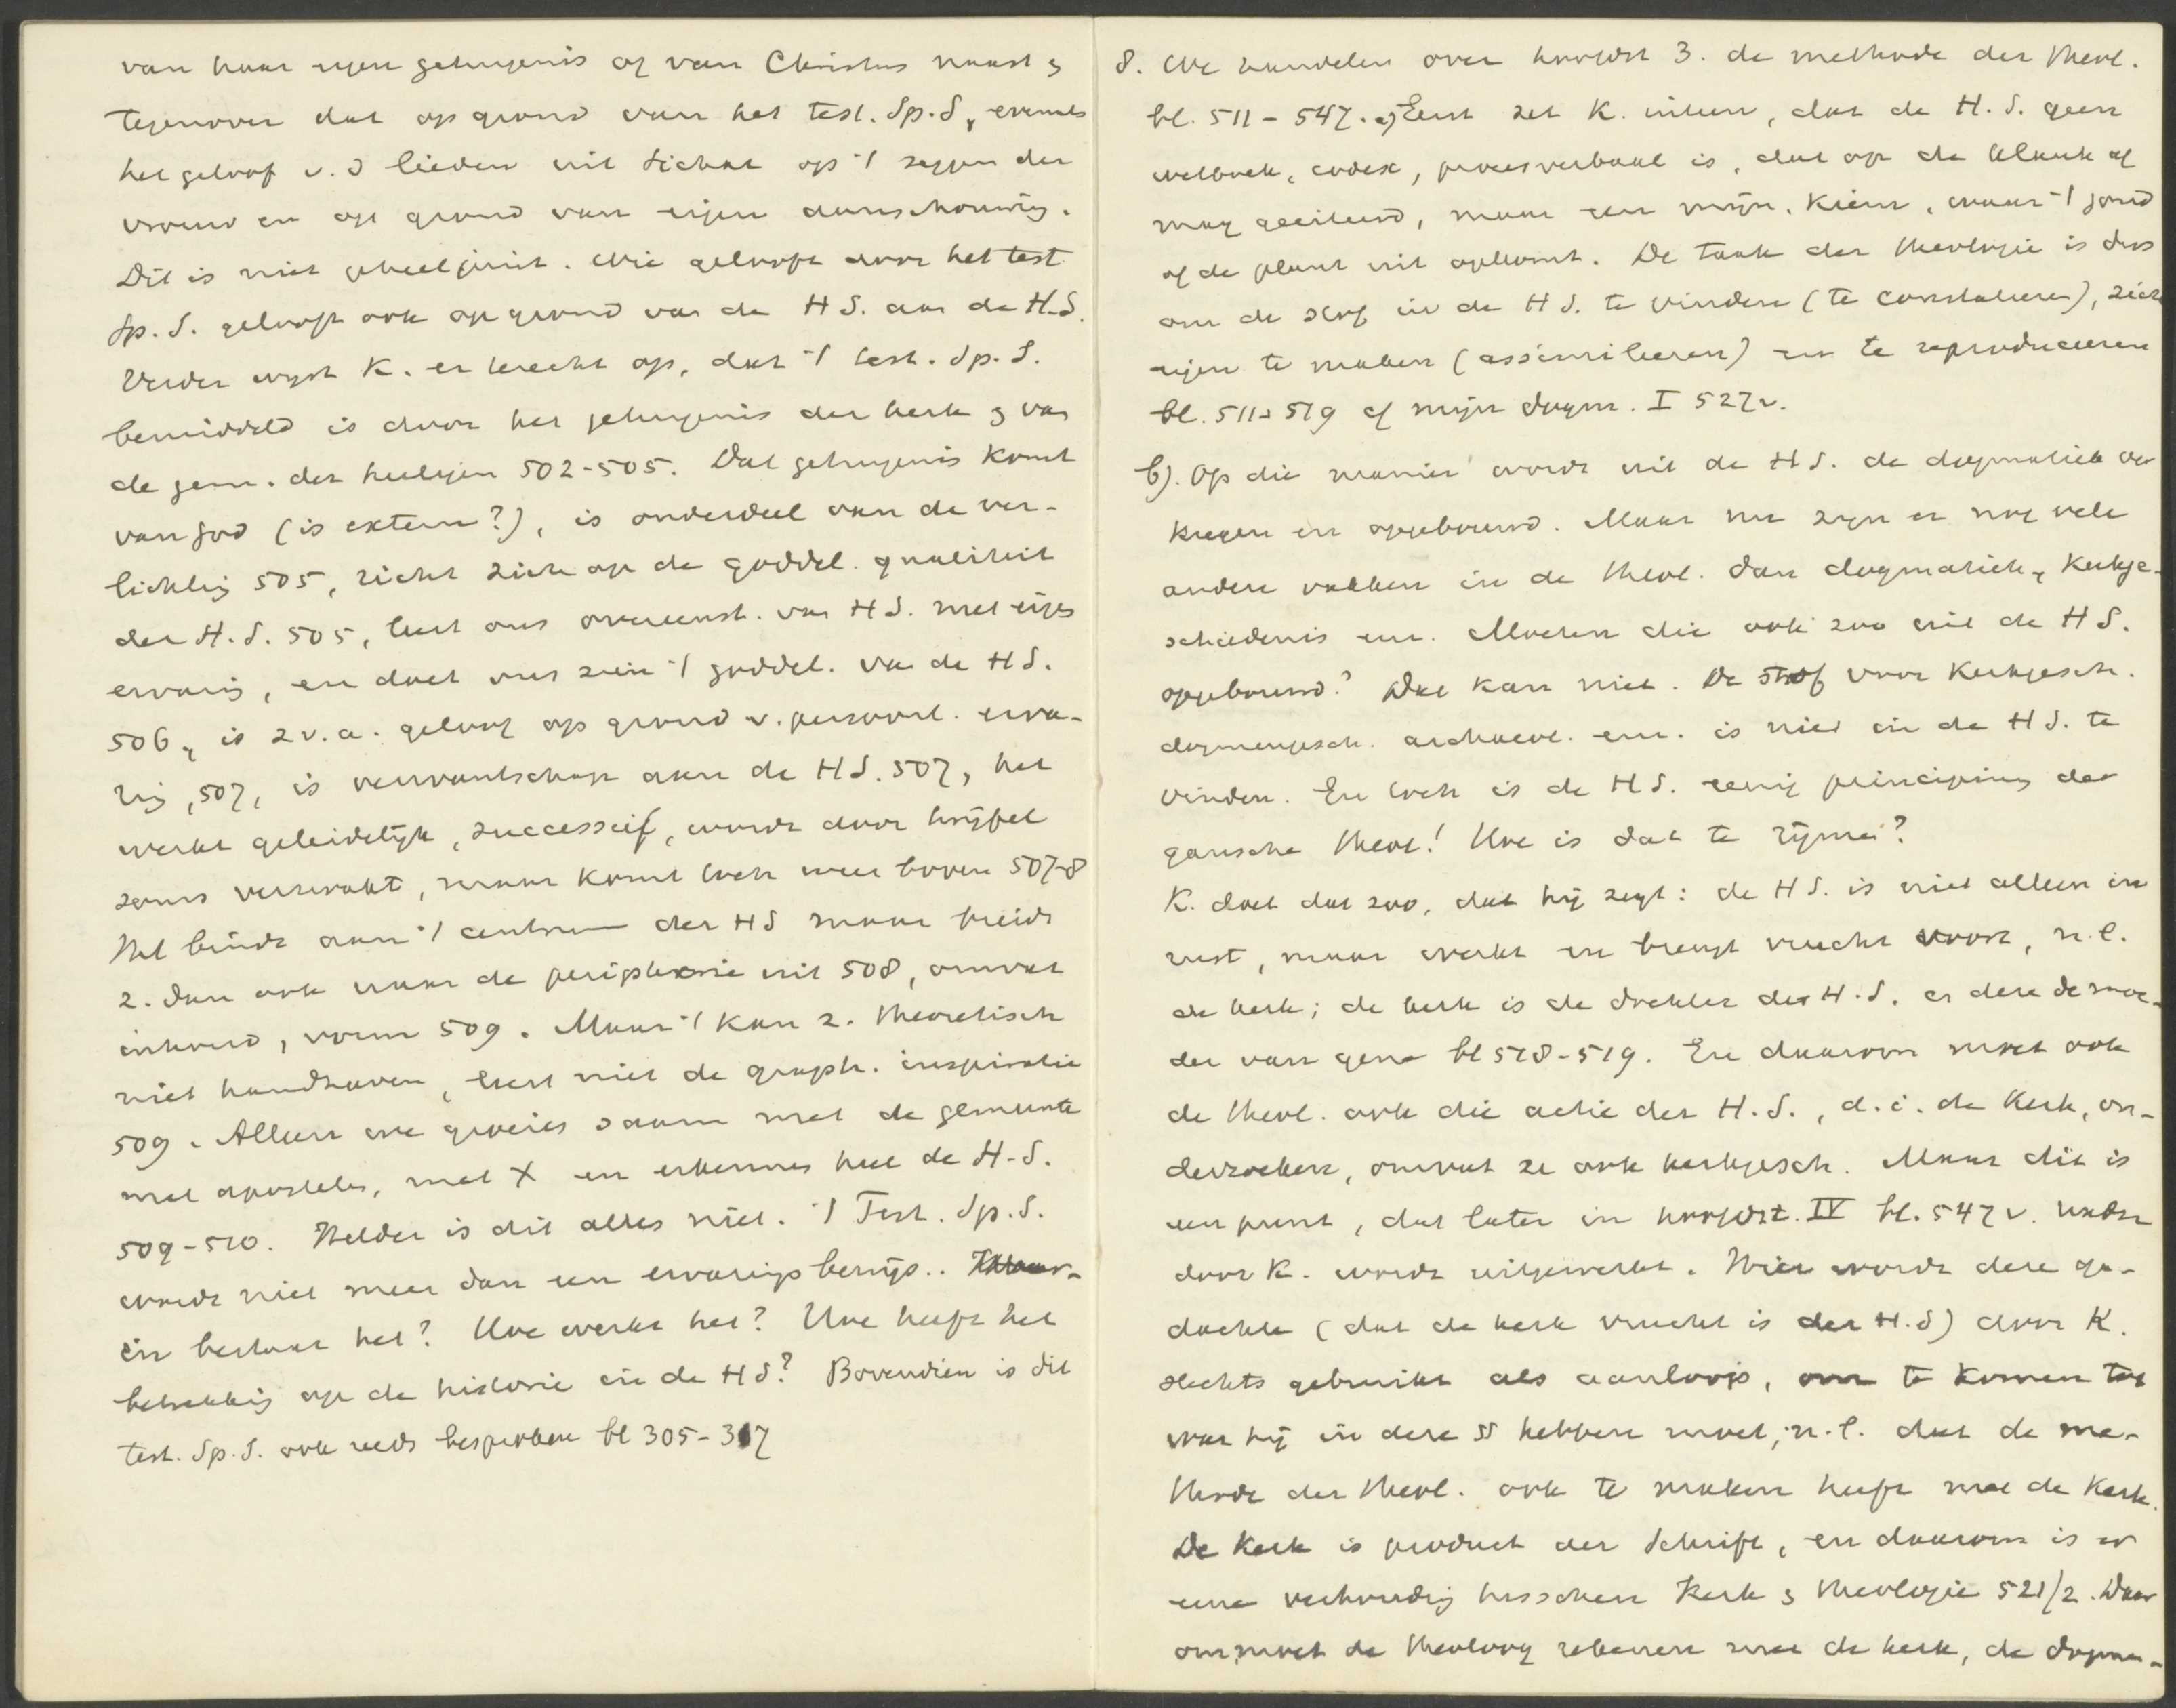 van haar eigen getuigenis of van Christus naast &
tegenover dat op grond van het test. Sp. S, evenals
het geloof v. d lieden uit Sichar op 't zeggen der
vrouw en op grond van eigen aanschouwing.
Dit is niet geheel juist. Wie gelooft door het test
Sp. S. gelooft ook op grond van de H S. aan de H.S.
Verder wijst K. er terecht op, dat 't test. Sp. S.
bemiddeld is door het getuigenis der kerk & van
de gem. der heiligen 502-505. Dat getuigenis komt
van God (is extern?), is onderdeel van de ver-
lichting 505, richt zich op de goddel. qualiteit
der H. S. 505, leert ons overeenst. van H S. met eigen
ervaring, en doet ons zien 't goddel. van de H S.
506, is z v. a. geloof op grond v. persoonl. erva-
ring, 507, is verwantschap aan de H S. 507, het
werkt geleidelijk, successief, wordt door twijfel
soms verzwakt, maar komt toch weer boven 507-8
Het bindt aan 't centrum der HS maar breidt
z. dan ook naar de peripherie uit 508, omvat
inhoud, vorm 509. Maar 't kan z. theoretisch
niet handhaven, leert niet de graph. inspiratie
509. Alleen we groeien saam met de gemeente
met apostelen, met X en erkennen heel de H-S.
509-510. Helder is dit alles niet. 't Test. Sp. S.
wordt niet meer dan een ervaringsbewijs.. Waar-
in bestaat het? Hoe werkt het? Hoe heeft het
betrekking op de historie in de H S? Bovendien is dit
test. Sp. S. ook reeds besproken bl 305-317
8. We handelen over hoofdst 3. de methode der theol.
bl. 511-547. a) Eerst zet K. uiteen, dat de H. S. geen
wetboek, codex, procesverbaal is, dat op de klank af
mag geciteerd, maar een mijn, kiem, waar 't goud
of de plant uit opkomt. De taak der theologie is dus
om de stof in de H S. te vinden (te constateeren), zich
eigen te maken (assimileeren) en te reproduceeren
bl. 511-519 cf mijn dogm. I 527v.
b). Op die manier wordt uit de H S. de dogmatiek ver
kregen en opgebouwd. Maar nu zijn er nog vele
andere vakken in de theol. dan dogmatiek, kerkge-
schiedenis enz. Moeten die ook zoo uit de H S.
opgebouwd? Dat kan niet. De stof voor kerkgesch.
dogmengesch. archaeol. enz. is niet in de H S. te
vinden. En toch is de H S. eenig principium der
gansche theol! Hoe is dat te rijmen?
K. doet dat zoo, dat hij zegt: de H S. is niet alleen in
rust, maar werkt en brengt vrucht voort, n.l.
de kerk; de kerk is de dochter der H. S. en deze de moe-
der van gene bl 518-519. En daarom moet ook
de theol. ook die actie der H. S., d. i. de Kerk, on-
derzoeken, omvat ze ook kerkgesch. Maar dit is
een punt, dat later in hoofdst. IV bl. 547 v. nader
door K. wordt uitgewerkt. Hier wordt deze ge-
dachte (dat de kerk vrucht is der H. S) door K.
slechts gebruikt als aanloop, om te komen tot
wat hij in deze §§ hebben moet, n. l. dat de me-
thode der theol. ook te maken heeft met de Kerk.
De Kerk is product der Schrift, en daarom is er
eene verhouding tusschen Kerk & theologie 521/2. Daar
om moet de theoloog rekenen met de kerk, de dogma-